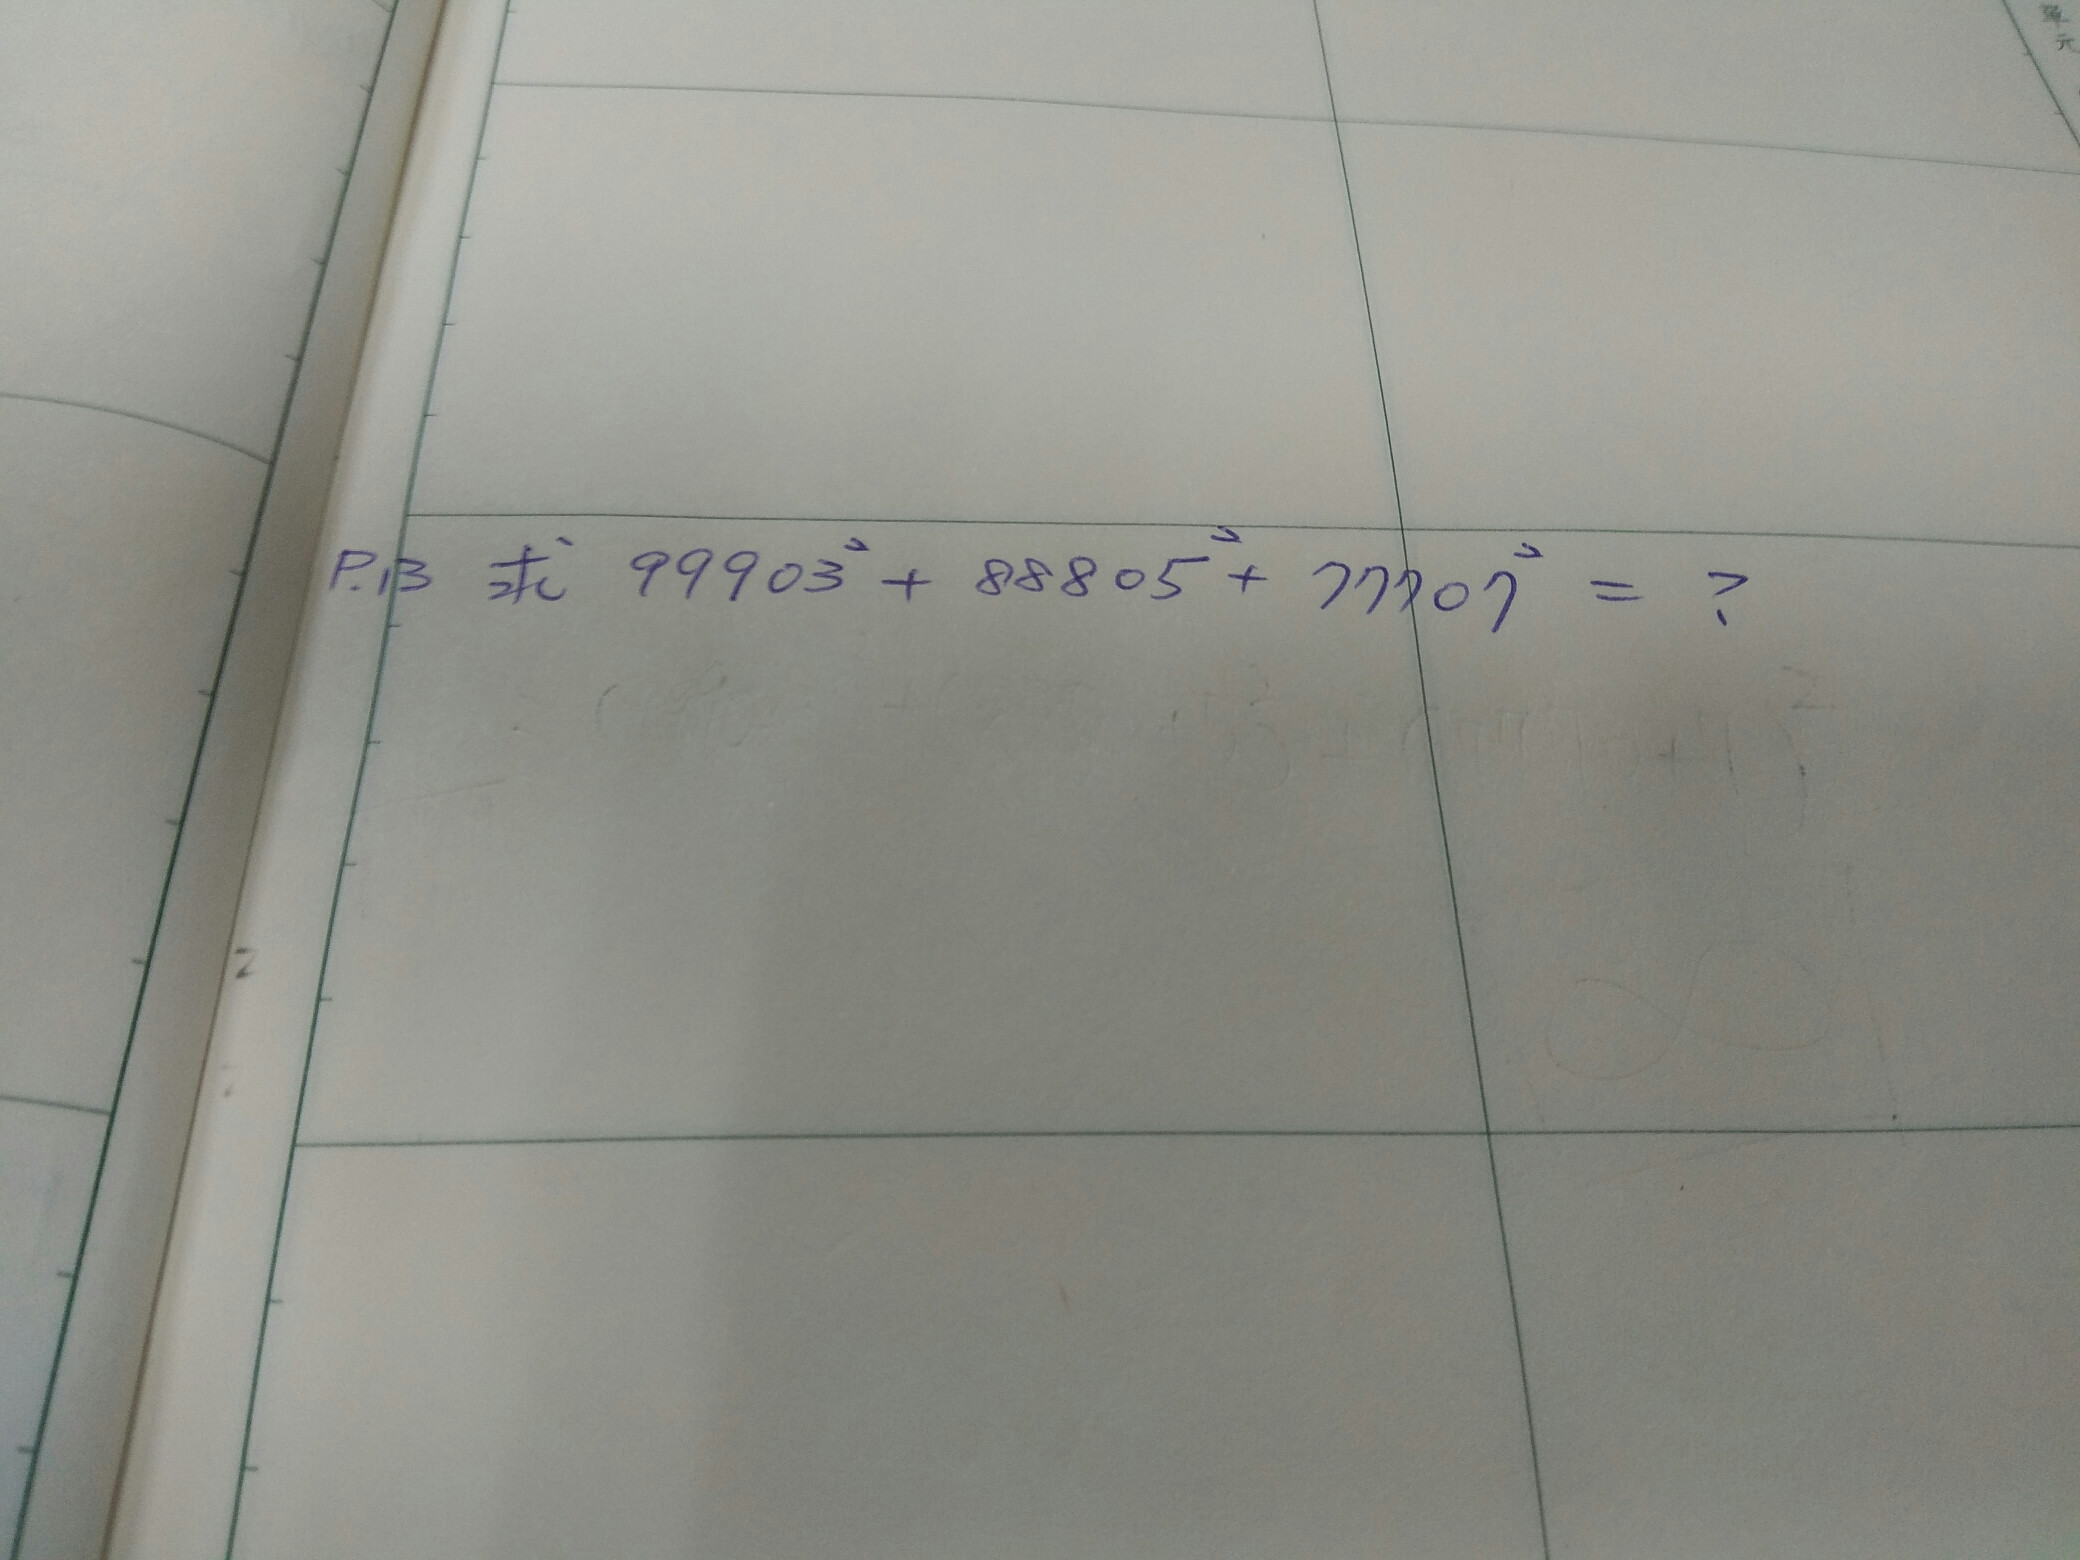 單元
P.13 求 99903² + 88805² + 77707² = ?
2